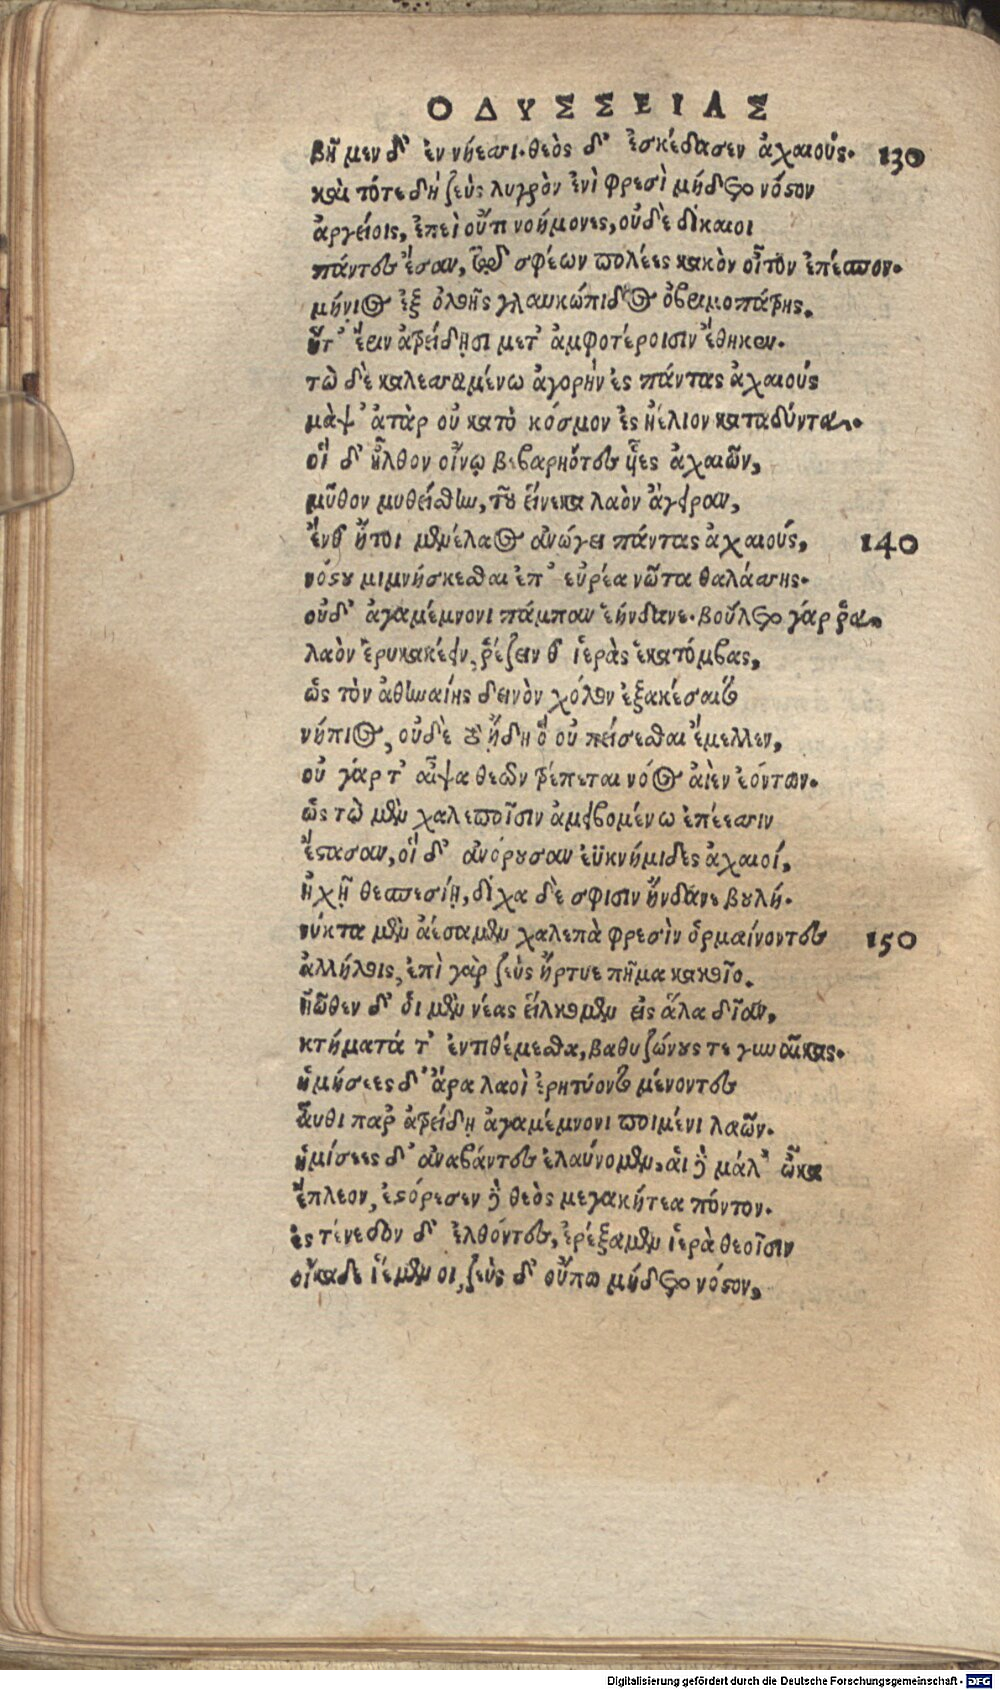 ΟΔΥΣΣΕΙΑΣ
βῆμεν δ' ἐν νήεσσι. θεὸς δ' ἐσκέδασεν ἀχαιούς. 130
καὶ τότε δὴ ζεὺς λυγρὸν ἐνὶ φρεσὶ μήδετο νόστον
ἀργείοις, ἐπεὶ οὔτι νοήμονες, οὐδὲ δίκαιοι
πάντες ἔσαν, τῶ σφέων πολέες κακὸν οἶτον ἐπέσπον.
μήνιος ἐξ ὀλοῆς γλαυκώπιδος ὀβριμοπάτρης.
ἥτ' ἔριν ἀτρείδῃσι μετ' ἀμφοτέροισιν ἔθηκεν.
τὼ δὲ καλεσσαμένω ἀγορὴν ἐς πάντας ἀχαιούς
μὰψ ἀτὰρ οὐ κατὰ κόσμον ἐς ἠέλιον καταδύντα.
οἵ δ' ἦλθον οἴνῳ βεβαρηότες υἷες ἀχαιῶν,
μῦθον μυθείσθην, τοῦ εἵνεκα λαὸν ἄγειραν,
ἔνθ' ἤτοι μενέλαος ἀνώγει πάντας ἀχαιούς, 140
νόστου μιμνήσκεσθαι ἐπ' εὐρέα νῶτα θαλάσσης.
οὐδ' ἀγαμέμνονι πάμπαν ἑήνδανε. βούλετο γάρ ῥα
λαὸν ἐρυκακέειν, ῥέζειν θ' ἱερὰς ἑκατόμβας,
ὡς τὸν ἀθηναίης δεινὸν χόλον ἐξακέσαιτο
νήπιος, οὐδὲ τὸ ᾔδη ὃ οὐ πείσεσθαι ἔμελλεν,
οὐ γάρ τ' αἶψα θεῶν τρέπεται νόος αἰὲν ἐόντων.
ὣς τὼ μὲν χαλεποῖσιν ἀμειβομένω ἐπέεσσιν
ἕστασαν, οἵ δ' ἀνόρουσαν ἐϋκνήμιδες ἀχαιοί,
ἠχῇ θεσπεσίῃ, δίχα δὲ σφισιν ἥνδανε βουλή.
νύκτα μὲν ἀέσαμεν χαλεπὰ φρεσὶν ὁρμαίνοντες 150
ἀλλήλοις, ἐπὶ γὰρ ζεὺς ἤρτυε πῆμα κακοῖο.
ἠῶθεν δ' οἱ μὲν νέας εἵλκομεν εἰς ἅλα δῖαν,
κτήματά τ' ἐντιθέμεσθα, βαθυζώνους τε γυναῖκας.
ἡμίσεες δ' ἄρα λαοὶ ἐρητύοντο μένοντες
αὖθι παρ' ἀτρείδῃ ἀγαμέμνονι ποιμένι λαῶν.
ἡμίσεες δ' ἀναβάντες ἐλαύνομεν, αἱ δὲ μάλ' ὦκα
ἔπλεον, ἐστόρεσεν δὲ θεὸς μεγακήτεα πόντον.
ἐς τένεδον δ' ἐλθόντες, ἐρέξαμεν ἱερὰ θεοῖσιν
οἴκαδε ἱέμενοι, ζεὺς δ' οὔπω μήδετο νόστον,
Digitalisierung gefördert durch die Deutsche Forschungsgemeinschaft - DFG